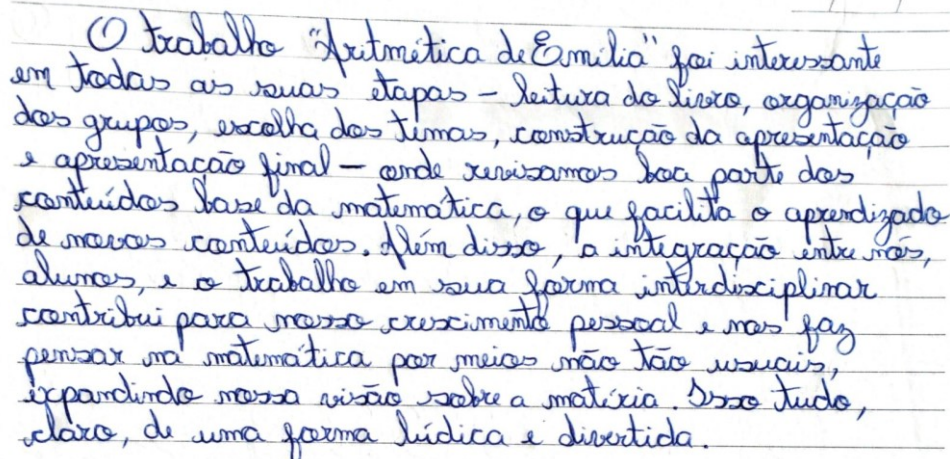 O trabalho "Aritmética de Emília" foi interessante
em todas as suas etapas – leitura do livro, organização
dos grupos, escolha dos temas, construção da apresentação
e apresentação final – onde revisamos boa parte dos
conteúdos base da matemática, o que facilita o aprendizado
de novos conteúdos. Além disso, a integração entre nós,
alunos, e o trabalho em sua forma interdisciplinar
contribui para nosso crescimento pessoal e nos faz
pensar na matemática por meios não tão usuais,
expandindo nossa visão sobre a matéria. Isso tudo,
claro, de uma forma lúdica e divertida.